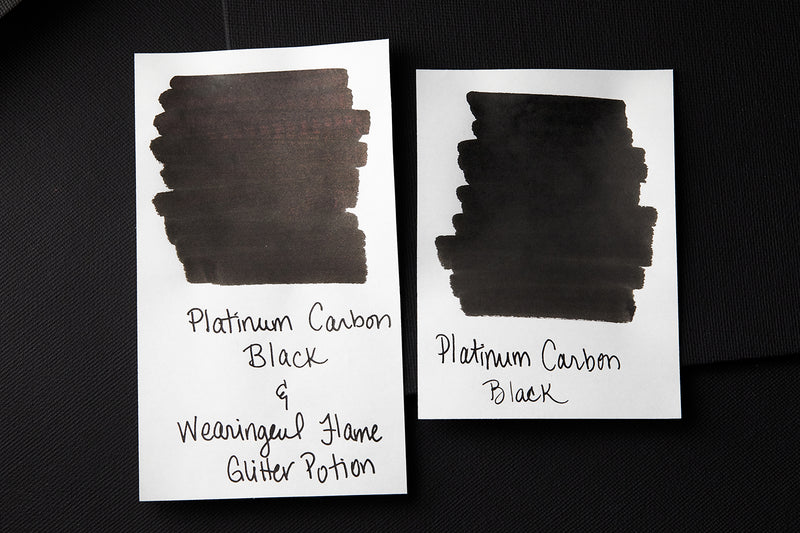 Platinum Carbon
Black
&
Wearingeul Flame
Glitter Potion
Platinum Carbon
Black